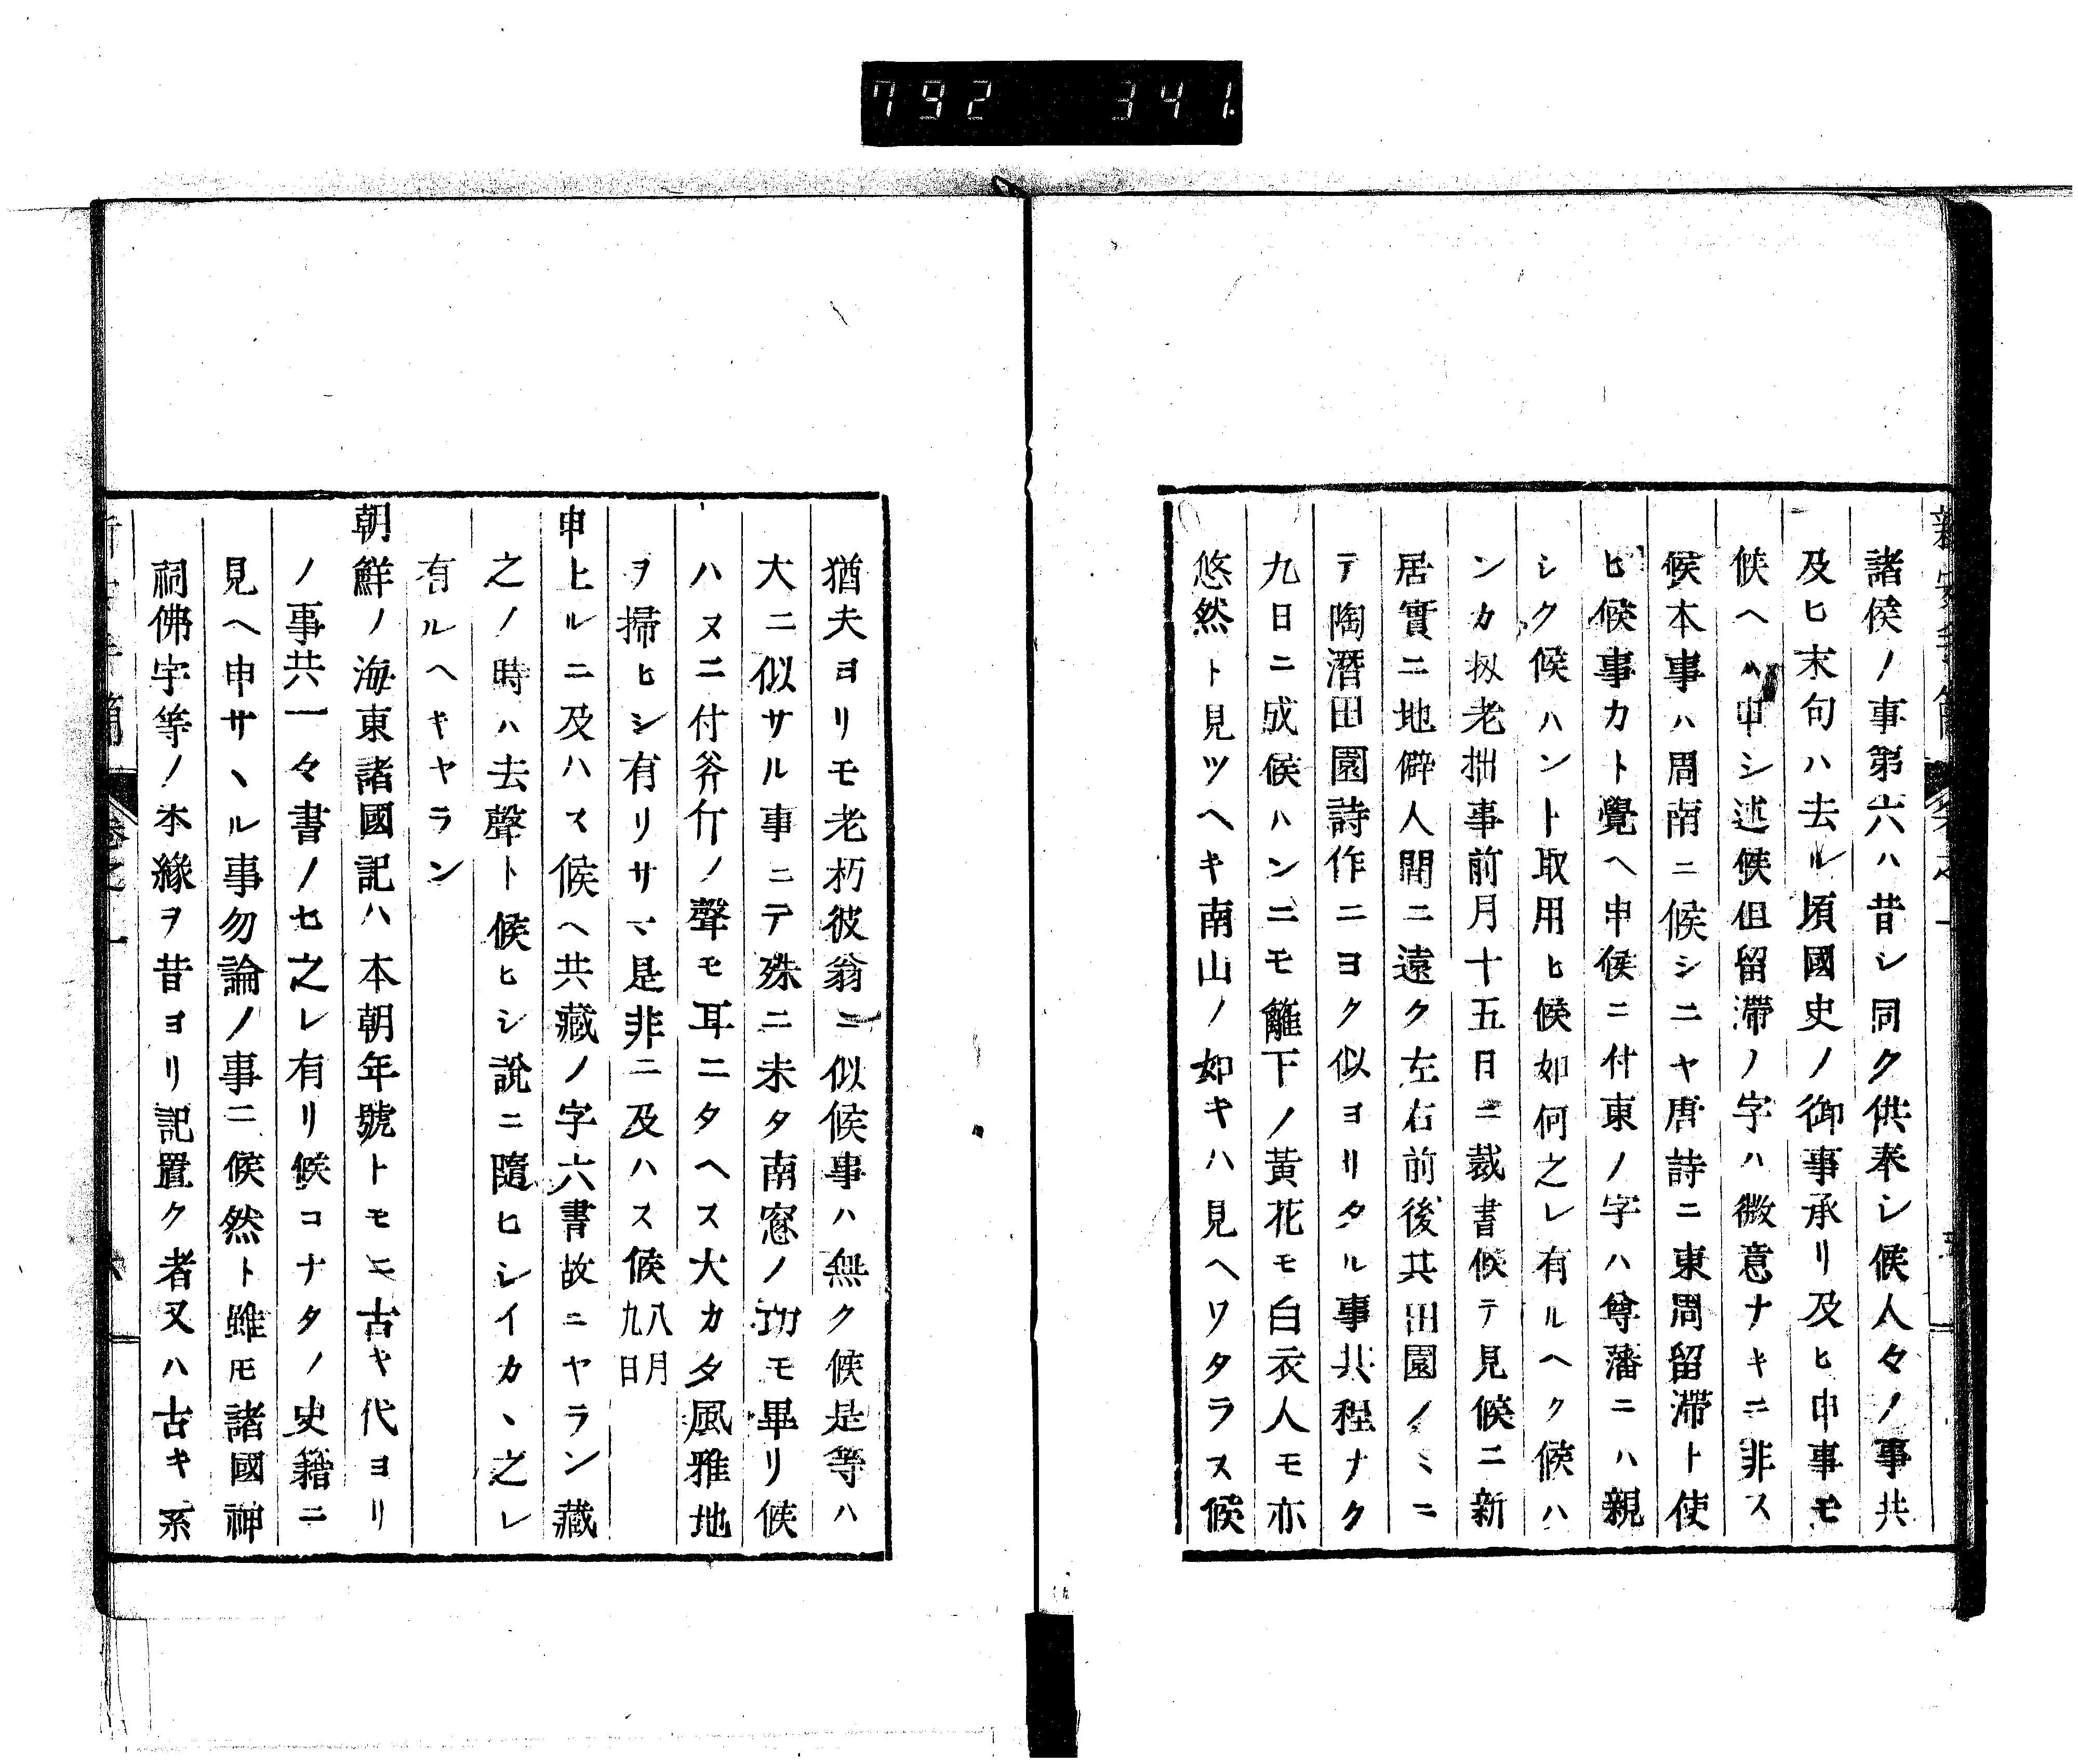 792 341.
諸侯ノ事第六ハ昔シ同ク供奉シ候人々ノ事共
及ヒ末句ハ去ル頃國史ノ御事承リ及ヒ申事モ
候ヘハ申シ述候但留滯ノ字ハ微意ナキニ非ス
候本事ハ周南ニ候シニヤ唐詩ニ東周留滯ト使
ヒ候事カト覺ヘ申候ニ付東ノ字ハ尊藩ニハ親
シク候ハント取用ヒ候如何之レ有ルヘク候ハ
ンカ扨老拙事前月十五日ニ裁書候テ見候ニ新
居實ニ地僻人間ニ遠ク左右前後其田園ノミニ
テ陶潛田園詩作ニヨク似ヨリタル事共程ナク
九日ニ成候ハンニモ籬下ノ黃花モ白衣人モ亦
悠然ト見ツヘキ南山ノ如キハ見ヘワタラス候
猶夫ヨリモ老朽彼翁ニ似候事ハ無ク候是等ハ
大ニ似サル事ニテ殊ニ未タ南窓ノ功モ畢リ候
ハヌニ付斧斤ノ聲モ耳ニタヘス大カタ風雅地
ヲ掃ヒシ有リサマ是非ニ及ハス候八月九日
申上ルニ及ハス候ヘ共藏ノ字六書故ニヤラン藏
之ノ時ハ去聲ト候ヒシ說ニ隨ヒシイカヽ之レ
有ルヘキヤラン
朝鮮ノ海東諸國記ハ本朝年號トモニ古キ代ヨリ
ノ事共一々書ノセ之レ有リ候コナタノ史籍ニ
見ヘ申サヽル事勿論ノ事ニ候然ト雖モ諸國神
祠佛宇等ノ本緣ヲ昔ヨリ記置ク者又ハ古キ系
卷之一